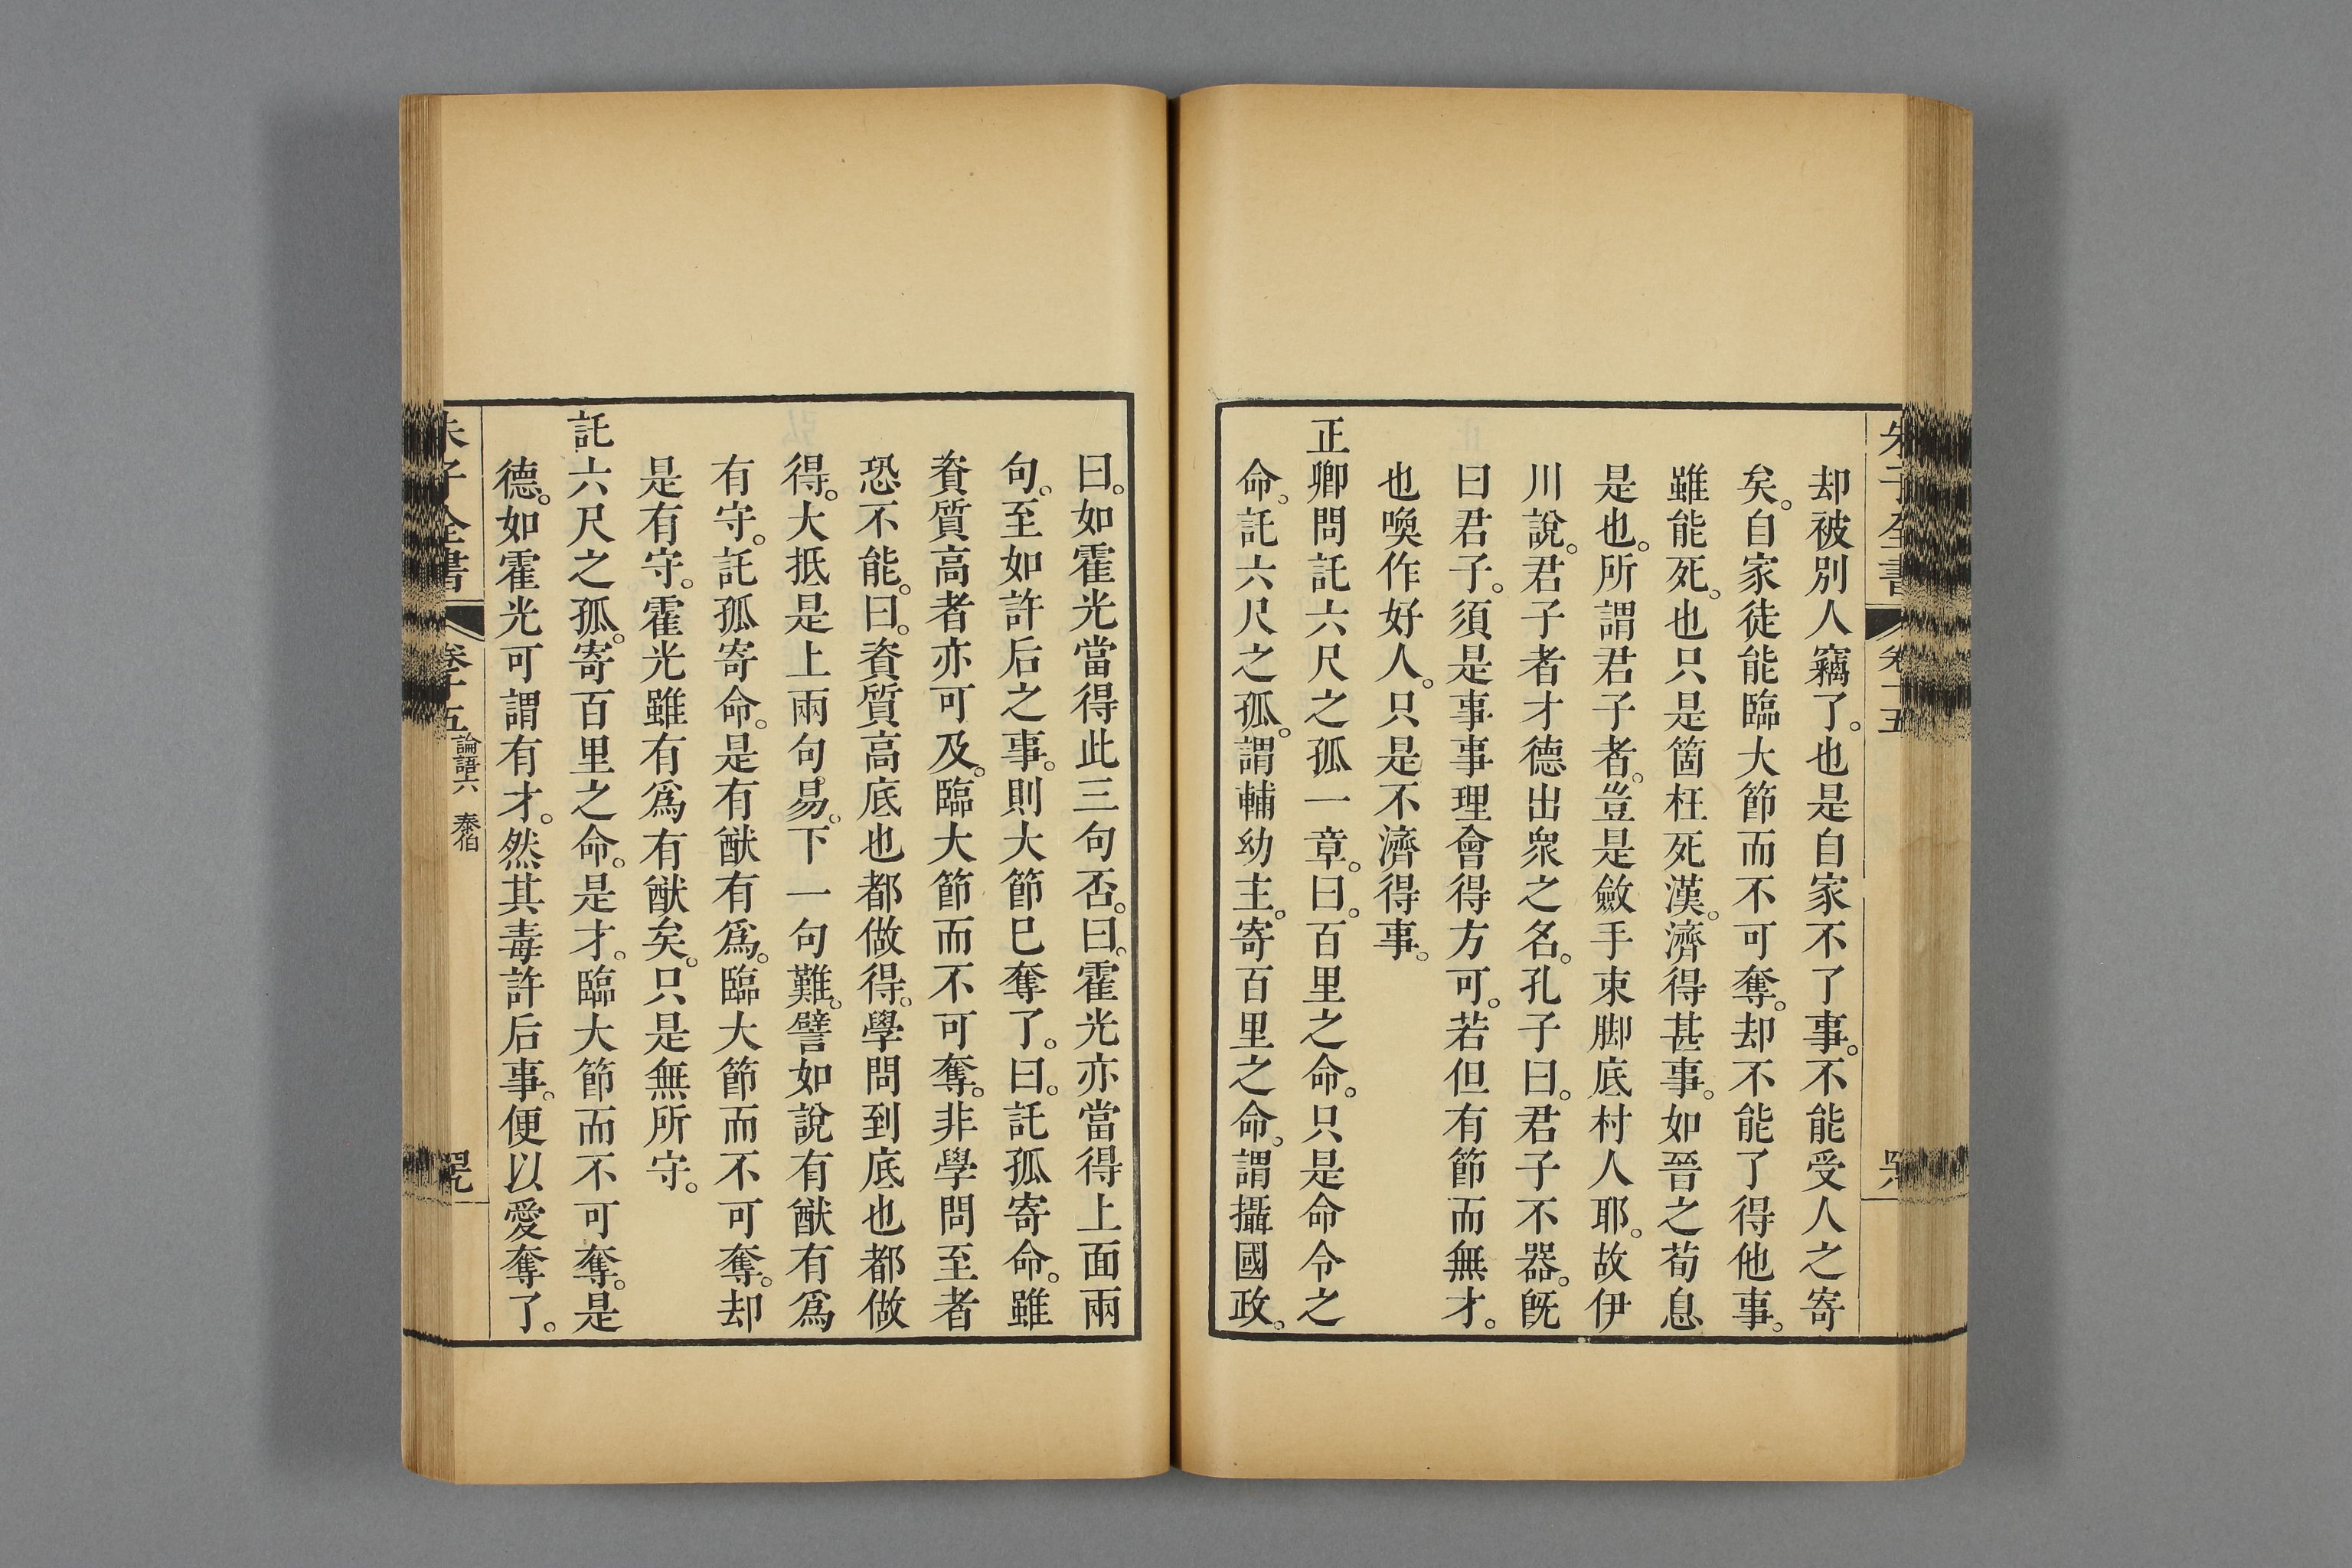 却被別人竊了。也是自家不了事。不能受人之寄
矣。自家徒能臨大節而不可奪。却不能了得他事。
雖能死。也只是箇枉死漢。濟得甚事。如晉之荀息
是也。所謂君子者。豈是斂手束脚底村人耶。故伊
川說。君子者才德出衆之名。孔子曰。君子不器。旣
曰君子。須是事事理會得方可。若但有節而無才。
也喚作好人。只是不濟得事。
正卿問託六尺之孤一章。曰。百里之命。只是命令之
命。託六尺之孤。謂輔幼主。寄百里之命。謂攝國政。
曰。如霍光當得此三句否。曰。霍光亦當得上面兩
句。至如許后之事。則大節已奪了。曰。託孤寄命。雖
資質高者亦可及。臨大節而不可奪。非學問至者
恐不能。曰。資質高底也都做得。學問到底也都做
得。大抵是上兩句易。下一句難。譬如說有猷有爲
有守。託孤寄命。是有猷有爲。臨大節而不可奪。却
是有守。霍光雖有爲有猷矣。只是無所守。
託六尺之孤。寄百里之命。是才。臨大節而不可奪。是
德。如霍光可謂有才。然其毒許后事。便以愛奪了。
朱子全書 卷十五 論語六 泰伯